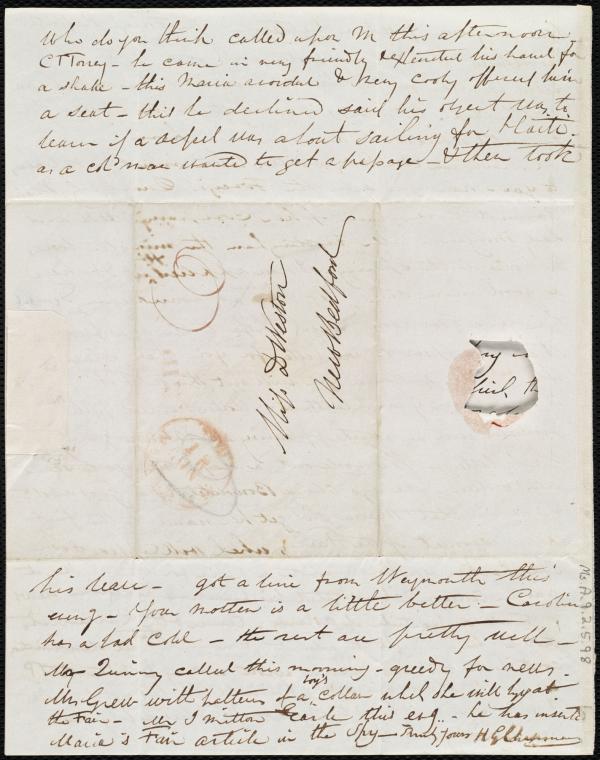 Who do you think called upon M this afternoon
C T Torrey - he came in very friendly & extended his hand for
a shake - this Maria avoided & very cooly offered him
a seat - this he declined said his object was to
learn if a vessel was about sailing for Haiti -
as a cold man wanted to get a passage - & then took
Miss D Weston
New Bedford
his leave - got a line from Weymouth this
eveng - Your mother is a little better - Caroline
has a bad cold - the rest are pretty well -
Mr Quincy called this morning - greedy for news -
Mrs Grew with pattern of a boy's collar which she will
the Fair - Mr J Milton Earle this eveg - he has inserted
Maria's Fair article in the Spy - Truly yours H G Chapman
Ms.A.9.2.5.98